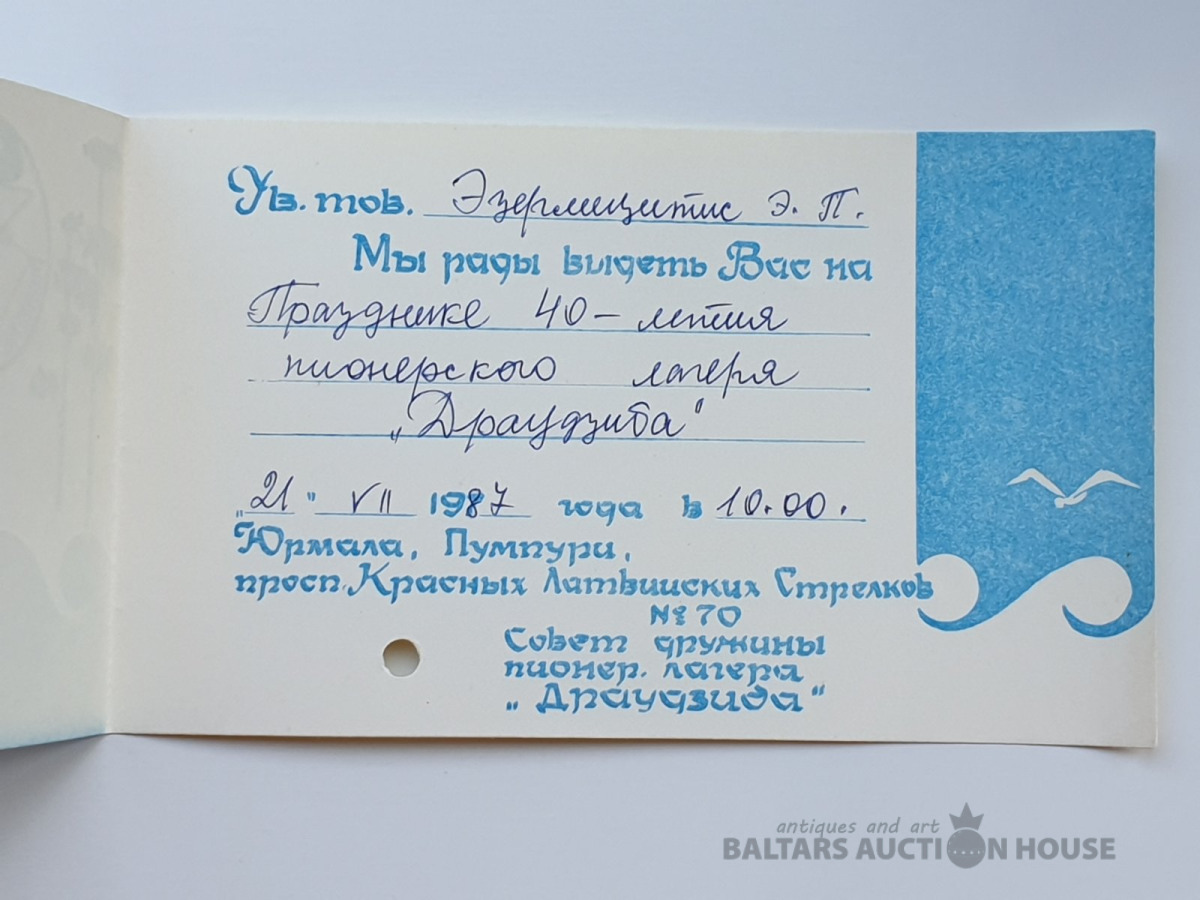 Ув. тов. Эзермицитис Э. П.
Мы рады видеть Вас на
Празднике 40-летия
пионерского лагеря
„Драудзиба"
„21" VII 1987 года в 10.00.
Юрмала, Пумпури,
просп. Красных Латвийских Стрелков
№ 70
Совет дружины
пионер. лагера
„Драудзиба"
antiques and art
BALTARS AUCTION HOUSE